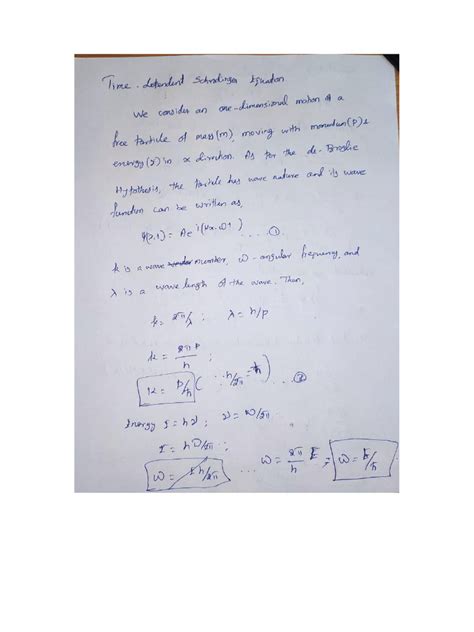 Time-dependent Schrodinger Equation
We consider an one-dimensional motion of a
free particle of mass(m), moving with momentum(p) &
energy(E) in x direction. As per the de-Broglie
Hypothesis, the particle has wave nature and its wave
function can be written as,
ψ(x,t) = Ae i(kx-ωt) .....①
k is a wave number, ω - angular frequency, and
λ is a wave length of the wave. Then,
k = 2π/λ ; λ = h/p
k = 2πp/h ;
k = p/ħ (∵ h/2π = ħ) ...②
Energy E = hν ; ν = ω/2π
E = hω/2π ;
ω = Eh/2π ... ω = 2π/h E = ω = E/ħ